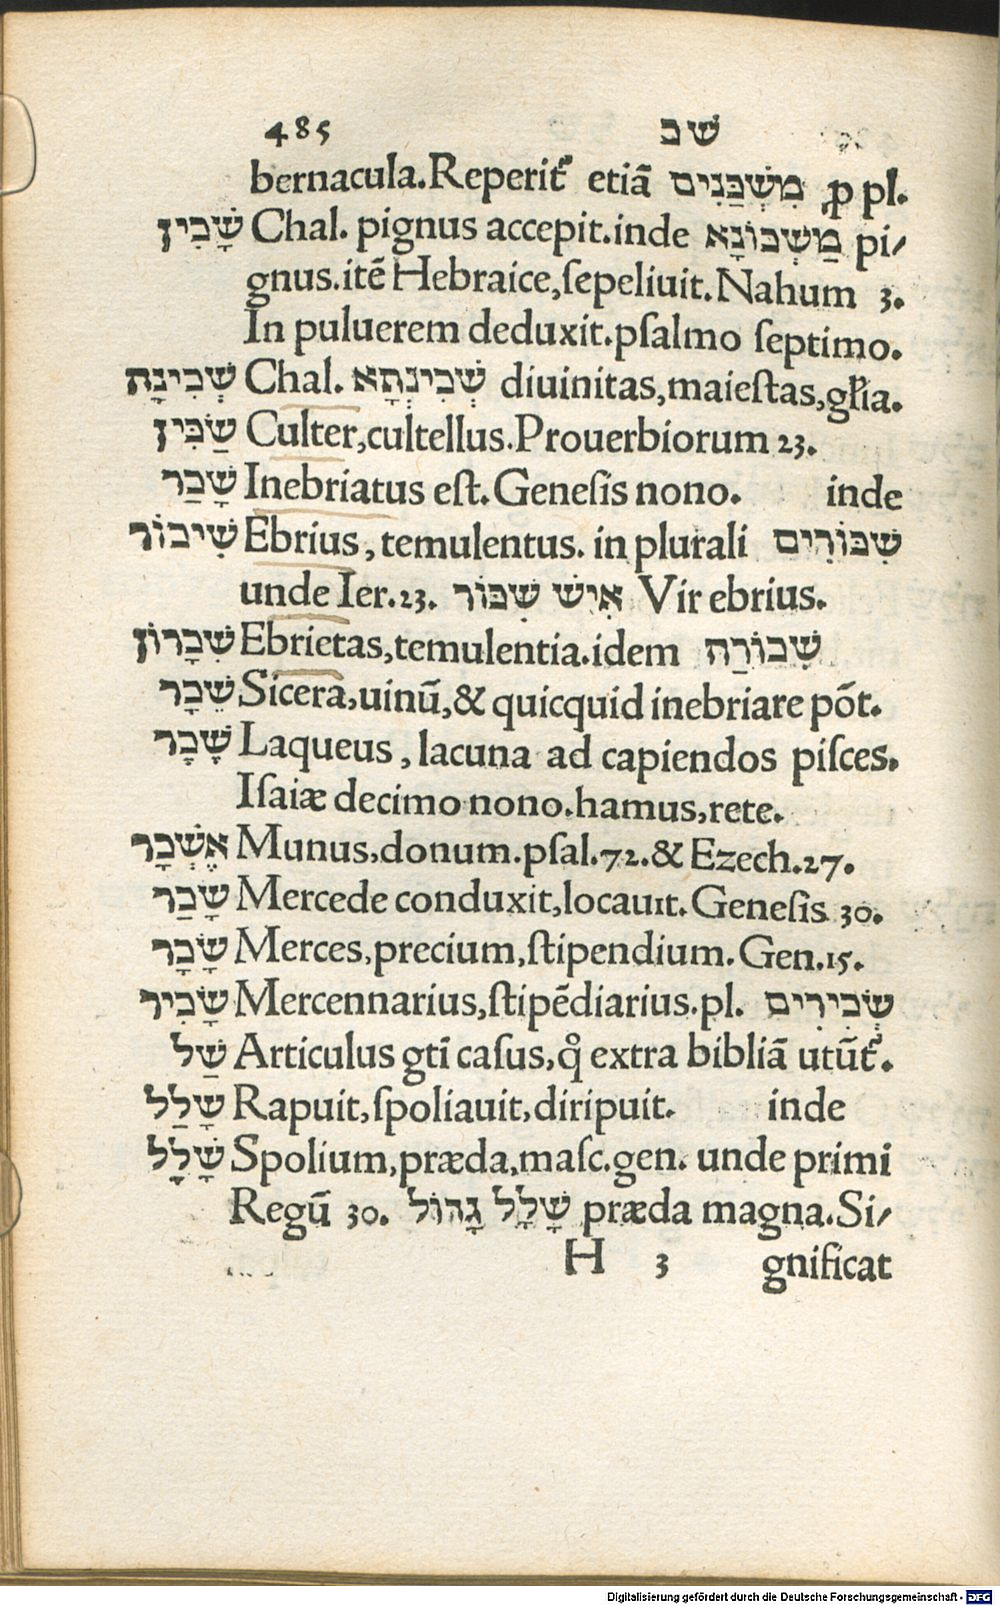 485 שׁכ
bernacula. Reperit᷑ etiā מִשְׁבַּנִים ꝓ pl.
שָׁכִין Chal. pignus accepit. inde מַשְׁכוֹנָא pi/
gnus. itē Hebraice, ſepeliuit. Nahum 3.
In puluerem deduxit. pſalmo ſeptimo.
שְׁכִינָה Chal. שְׁכִינְתָא diuinitas, maieſtas, gl̄ia.
שַׂכִּין Culter, cultellus. Prouerbiorum 23.
שָׁכַר Inebriatus eſt. Geneſis nono. inde
שִׁיכוֹר Ebrius, temulentus. in plurali שִׁכּוֹרִים
unde Ier. 23. אִישׁ שִׁכּוֹר Vir ebrius.
שִׁכָרוֹן Ebrietas, temulentia. idem שִׁכוֹרַה
שֵׁכָר Sicera, uinū, & quicquid inebriare pōt.
שָׂכָר Laqueus, lacuna ad capiendos piſces.
Iſaiæ decimo nono. hamus, rete.
אֶשְׁכָר Munus, donum. pſal. 72. & Ezech. 27.
שָׂכַר Mercede conduxit, locauit. Geneſis 30.
שָׂכָר Merces, precium, ſtipendium. Gen. 15.
שָׂכִיר Mercennarius, ſtipēdiarius. pl. שְׂכִירִים
שַׁל Articulus gtī caſus, ꝗ̄ extra bibliā utūt᷑.
שָׁלַל Rapuit, ſpoliauit, diripuit. inde
שָׁלָל Spolium, præda, maſc. gen. unde primi
Regū 30. שָׁלָל גָּדוֹל præda magna. Si/
H 3 gnificat
Digitalisierung gefördert durch die Deutsche Forschungsgemeinschaft - DFG